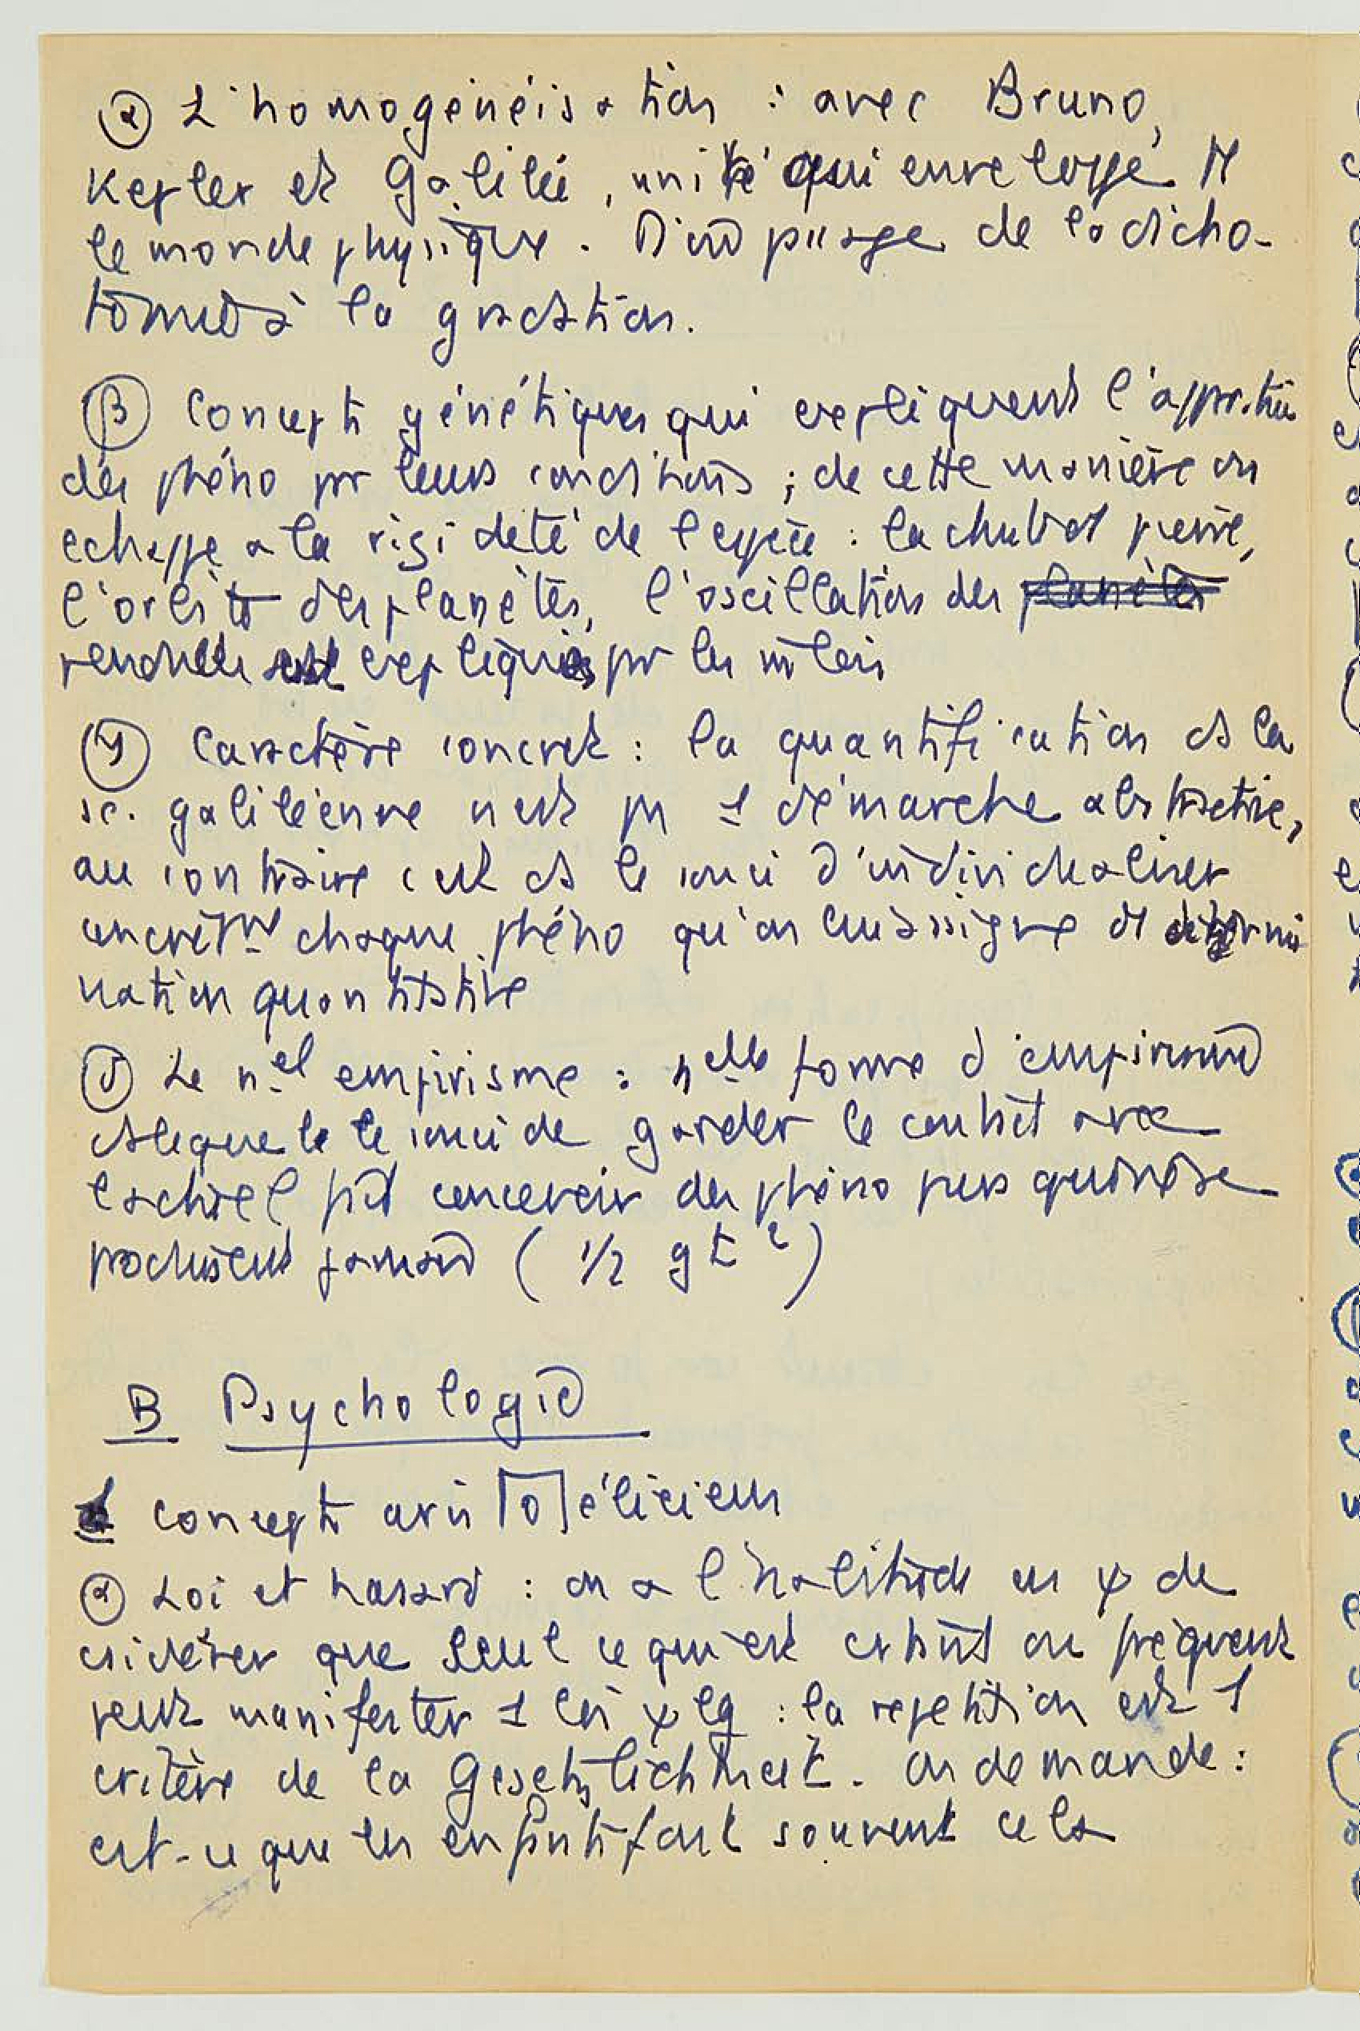 ⓐ L'homogénéisation : avec Bruno,
Kepler et Galilée, unité qui enveloppe tt
le monde physique. D'où passage de la dicho-
tomie à la gradation.
ⓑ Concepts génétiques qui expliquent l'apparition
des phéno par leurs conditions ; de cette manière on
echappe a la rigidité de l'espèce : la chute d pierre,
l'orbite des planètes, l'oscillation des planètes
pendules expliqués par les m lois
Caractère concret : la quantification ds la
sc. galiléenne n'est pas 1 démarche abstractive,
au contraire c'est ds le souci d'individualiser
concrètmt chaque phéno qu'on lui assigne
nation quantitative
Le nel empirisme : nelle forme d'empirisme
ds lequel le souci de garder le contact avec
le réel peut concevoir des phéno purs qui ne se
produisent jamais (1/2 gt²)
B Psychologie
1 concepts aristotéliciens
ⓐ Loi et hasard : on a l'habitude en ψ de
csidérer que seul ce qui est cstant ou fréquent
peut manifester 1 loi ψ lgq : la repetition est 1
critère de la Gesetzlichkeit. On demande :
est-ce que les enfants font souvent cela